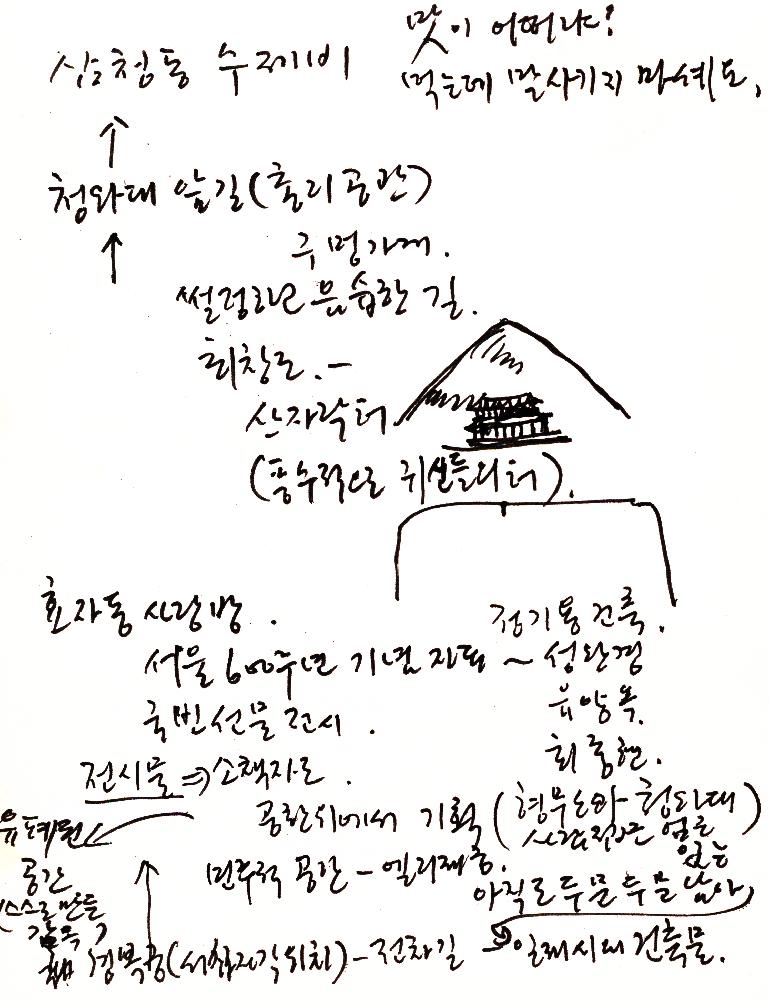 맛이 어떠냐?
삼청동 수제비
먹는데 말시키지 마세요,
청와대 앞길(총리공관)
구멍가게.
썰렁하고 음습한 길.
최창조.-
산자락터
(풍수적으로 귀신들의 터).
효자동 사랑방.
정기용 건축.
서울 600주년 기념 자료 ~ 성완경
국빈선물 전시.
유양옥.
최종현.
전시물 ⇒ 소책자로.
공환위에서 기획 (형무소와 청와대)
사람 집은 없는
공간
민주적 공간 -
아직도 두문두문 남아,
(스스로 만든
감옥)
경복궁(서십자각위치) - 전차길
일제시대 건축물.